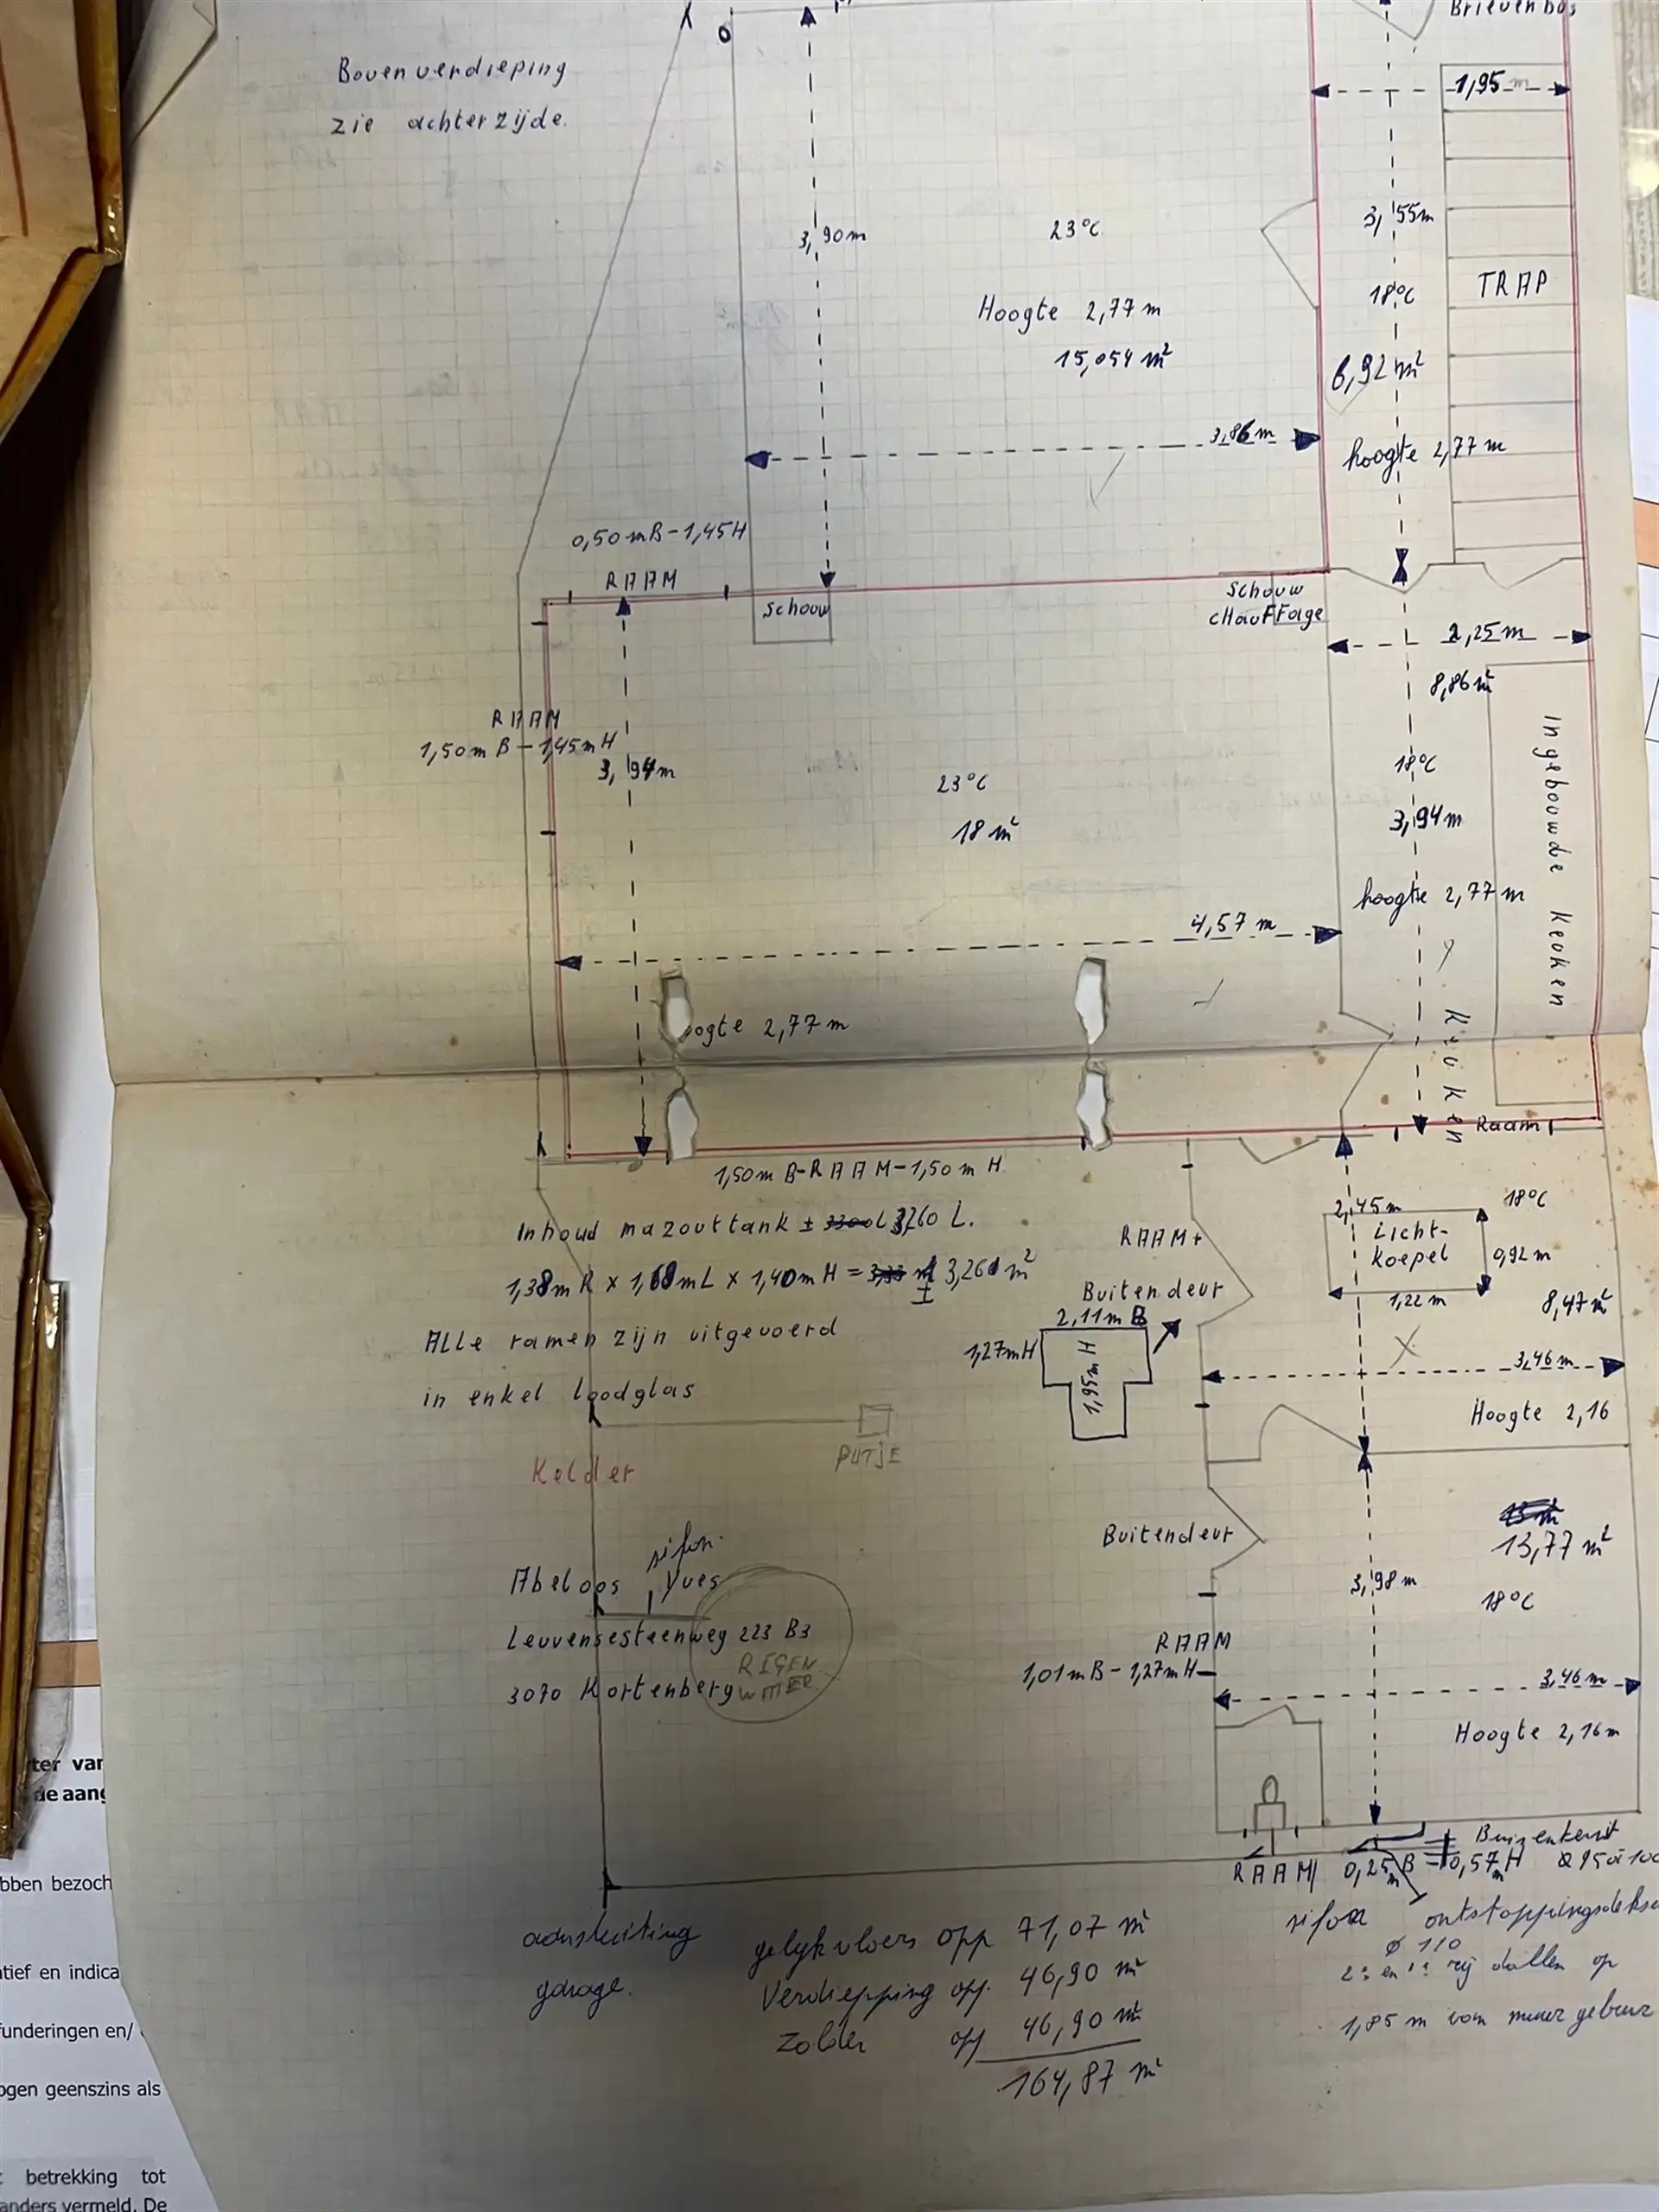 Brievenbus
Bovenverdieping
zie achterzijde.
1,95 m
3,90m
23°C
3,55m
18°C
TRAP
Hoogte 2,77 m
15,054 m²
6,92 m²
3,86 m
hoogte 2,77 m
0,50 mB-1,45H
RAAM
Schouw
Schouw
cHauFFage
2,25 m
8,86 m²
RAAM
1,50m B-1,45m H
3,94m
23°C
18 m²
18°C
3,94m
Ingebouwde keuken
hoogte 2,77 m
4,57 m
oogte 2,77 m
Keuken
Raam
1,50m B-RAAM-1,50m H
Inhoud mazouttank ± 3300L 3260 L.
1,38m R x 1,68mL x 1,40m H = 3,33 m ± 3,260 m²
ALLe ramen zijn uitgevoerd
in enkel loodglas
RAAM+
Buitendeur
2,11m B
1,27mH
1,95m H
2,45m
18°C
Licht-
koepel
0,92 m
1,22 m
8,47 m²
3,46 m
Hoogte 2,16
PUTJE
Kelder
sifon.
Abeloos Yves
Leuvensesteenweg 223 B3
3070 Kortenberg
REGEN
WATER
Buitendeur
13,77 m²
3,98 m
18°C
RAAM
1,01mB-1,27mH
3,46 m
Hoogte 2,16m
Buizenkent
RAAM 0,25m B = 0,57m H
sifon ontstoppingsdeksel
Ø 110
2e en 1e rij dallen op
1,85 m van muur gebuur
aansluiting
garage.
gelijkvloers opp 71,07 m²
Verdiepping opp. 46,90 m²
Zolder opp 46,90 m²
164,87 m²
ter van
de aang
bben bezoch
tief en indica
funderingen en/
ogen geenszins als
betrekking tot
anders vermeld. De